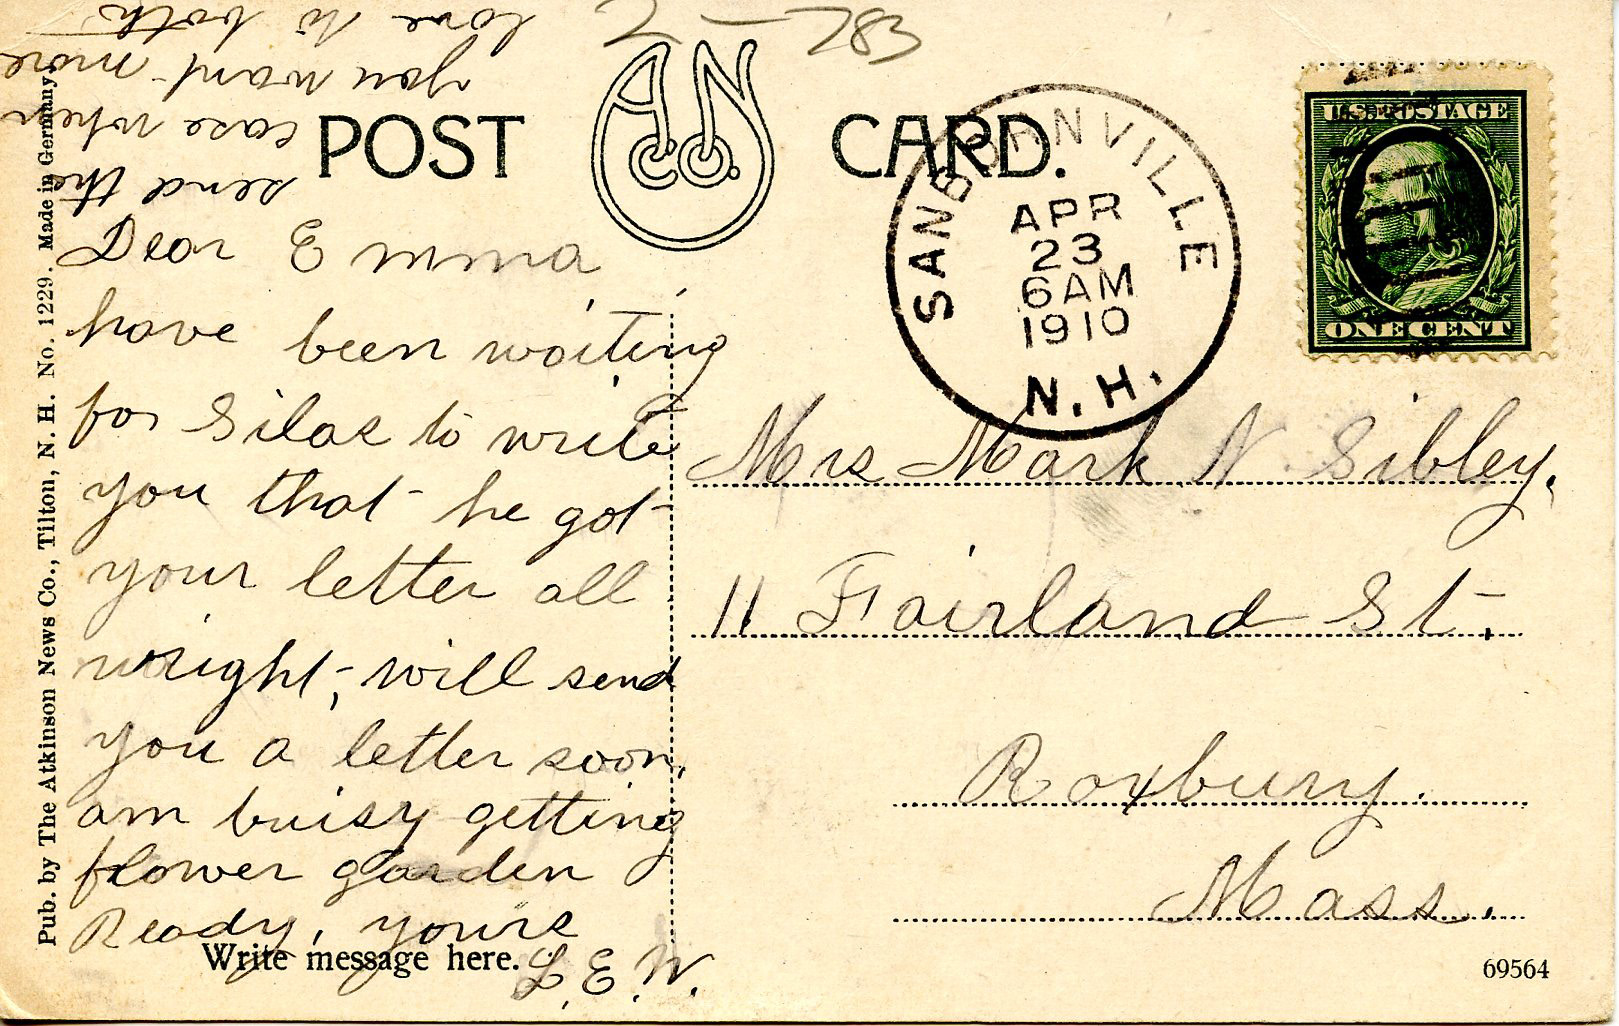 2 – 783
POST
A.N. CO.
CARD.
SANBORNVILLE
APR
23
6 AM
1910
N.H.
U.S. POSTAGE
ONE CENT
Pub. by The Atkinson News Co., Tilton, N. H. No. 1229. Made in Germany.
Dear Emma
have been waiting
for Silas to write
you that he got
your letter all
wright, will send
you a letter soon,
am buisy getting
flower garden
Ready, yours
L. E. W.
send the
case when
you want more
love to both
Write message here.
Mrs Mark N. Sibley.
11 Fairland St.
Roxbury.
Mass.
69564